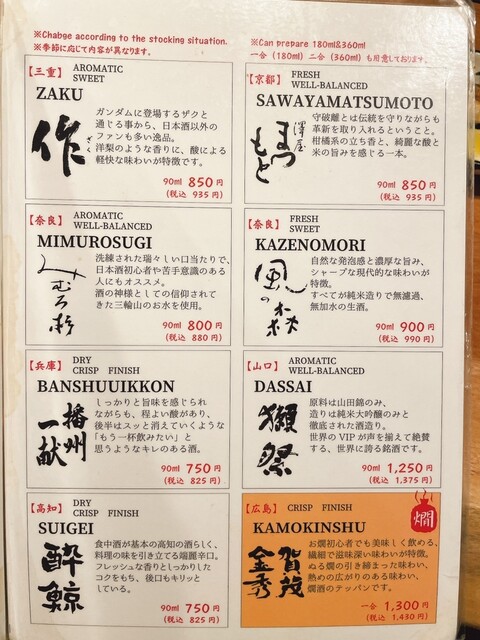 ※Chabge according to the stocking situation.
※季節に応じて内容が異なります。
※Can prepare 180ml&360ml
一合(180ml)二合(360ml)も用意しております。
【三重】 AROMATIC
SWEET
ZAKU
作
ざく
ガンダムに登場するザクと
通じる事から、日本酒以外の
ファンも多い逸品。
洋梨のような香りに、酸による
軽快な味わいが特徴です。
90ml 850円
(税込 935円)
【京都】 FRESH
WELL-BALANCED
SAWAYAMATSUMOTO
澤屋
まつもと
守破離とは伝統を守りながらも
革新を取り入れるということ。
柑橘系の立ち香と、綺麗な酸と
米の旨みを感じる一本。
90ml 850円
(税込 935円)
【奈良】 AROMATIC
WELL-BALANCED
MIMUROSUGI
みむろ杉
洗練された瑞々しい口当たりで、
日本酒初心者や苦手意識のある
人にもオススメ。
酒の神様としての信仰されて
きた三輪山のお水を使用。
90ml 800円
(税込 880円)
【奈良】 FRESH
SWEET
KAZENOMORI
風の森
自然な発泡感と濃厚な旨み、
シャープな現代的な味わいが
特徴。
すべてが純米造りで無濾過、
無加水の生酒。
90ml 900円
(税込 990円)
【兵庫】 DRY
CRISP FINISH
BANSHUUIKKON
播州
一献
しっかりと旨味を感じられ
ながらも、程よい酸があり、
後半はスッと消えていくような
「もう一杯飲みたい」と
思うようなキレのある酒。
90ml 750円
(税込 825円)
【山口】 AROMATIC
WELL-BALANCED
DASSAI
獺祭
原料は山田錦のみ、
造りは純米大吟醸のみと
徹底された酒造り。
世界のVIPが声を揃えて絶賛
する、世界に誇る銘酒です。
90ml 1,250円
(税込 1,375円)
【高知】 DRY
CRISP FINISH
SUIGEI
酔鯨
食中酒が基本の高知の酒らしく、
料理の味を引き立てる端麗辛口。
フレッシュな香りとしっかりした
コクをもち、後口もキリッと
している。
90ml 750円
(税込 825円)
【広島】 CRISP FINISH
燗
KAMOKINSHU
賀茂
金秀
お燗初心者でも美味しく飲める、
繊細で滋味深い味わいが特徴。
ぬる燗の引き締まった味わい、
熱めの広がりのある味わい、
燗酒のテッパンです。
一合 1,300円
(税込 1,430円)